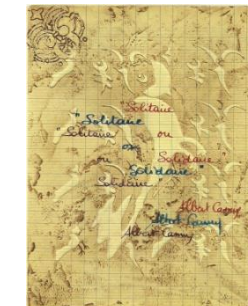 Solitaire
"Solitaire
Solitaire ou
ou Solidaire
ou
Solidaire."
Solidaire
Albert Camus
Albert Camus
Albert Camus